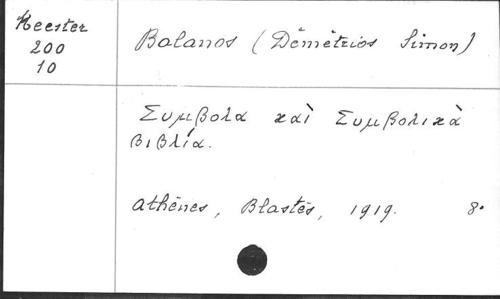 Meester
200
10
Balanos (Dêmêtrios Simon)
Σύμβολα καὶ Συμβολικὰ
βιβλία.
Athènes, Blastès, 1919. 8°